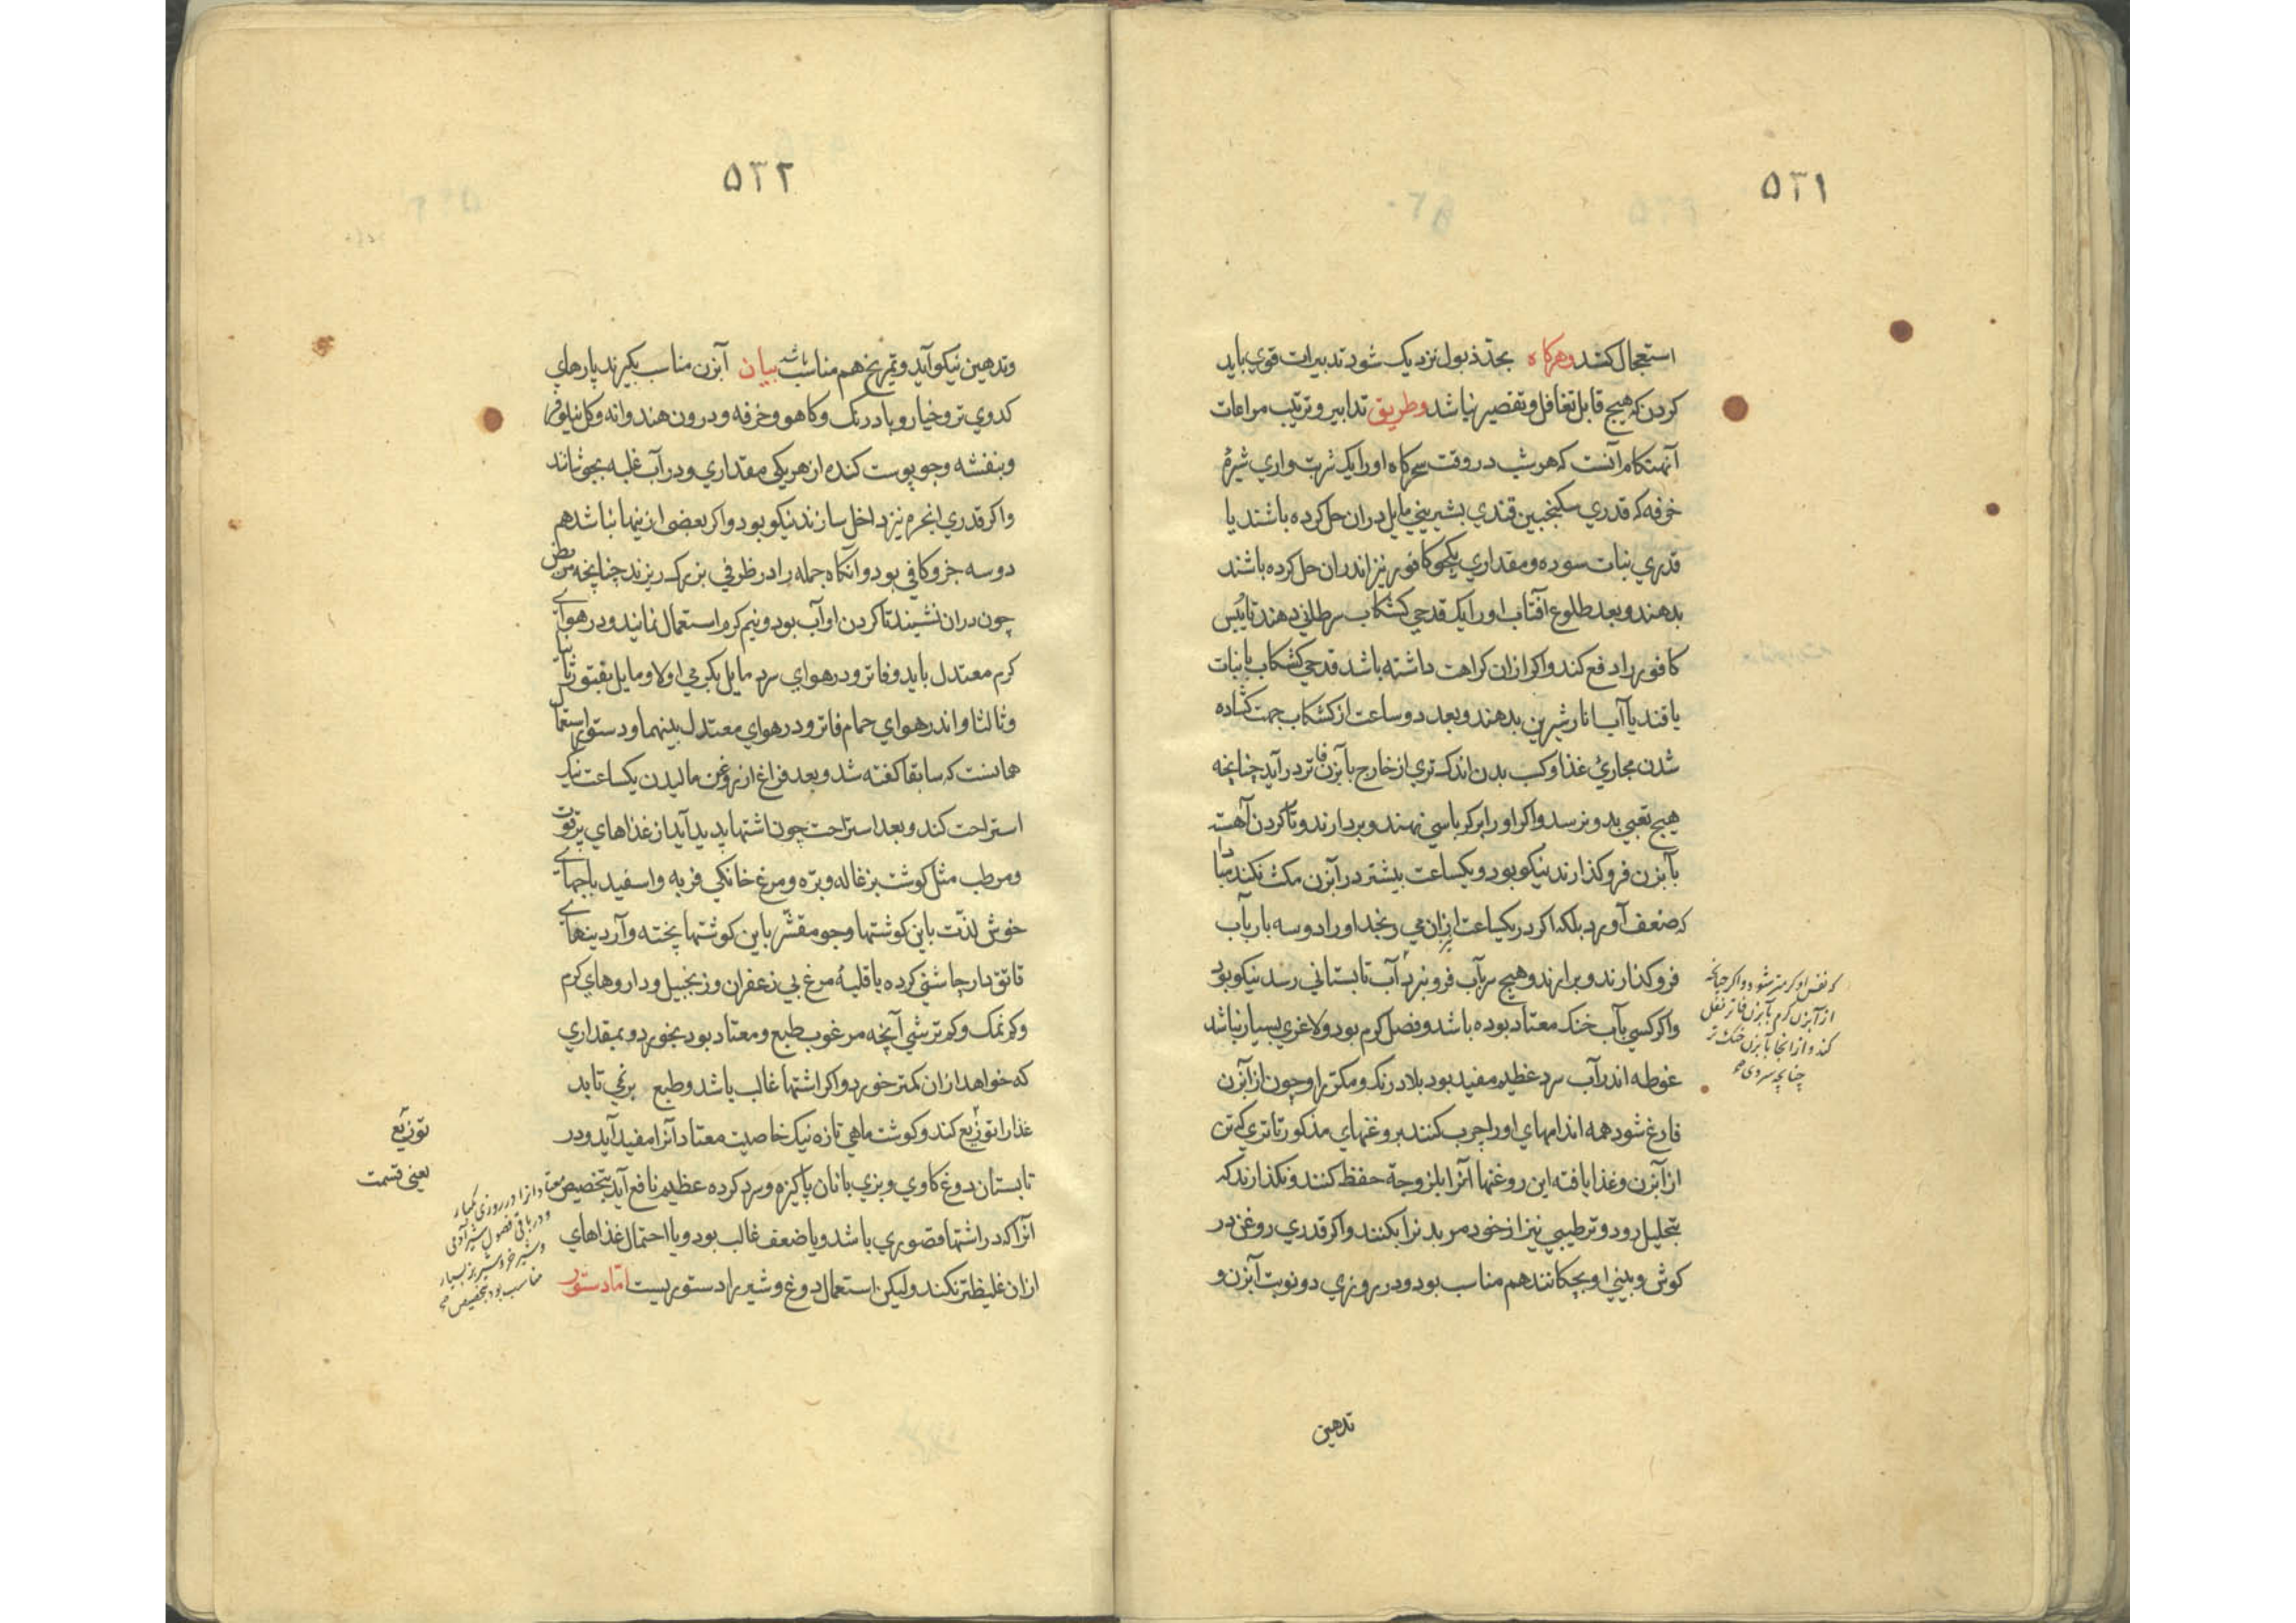 ۵۳۱
استعجال کنند و هرکاه بحد ذبول نزدیک شود تدبیرات قوی باید
کردن که هیچ قابل تغافل و تقصیر نباشد و طریق تدابیر و ترتیب مراعات
آنهنکام آنست که هر شب در وقت سحرکاه او را یک شربت واری شیرهٔ
خرفه که قدری سکنجبین قندی بشیرینی مایل دران حل کرده باشند یا
قدری نبات سوده و مقداری یکجو کافور نیز اندران حل کرده باشند
بدهند و بعد طلوع آفتاب او را یک قدحی کشکاب سرطانی دهند تا یبس
کافور را دفع کند و اکر ازان کراهت داشته باشد قدحی کشکاب با نبات
یا قند یا آب انار شیرین بدهند و بعد دو ساعت از کشکاب جهت کشاده
شدن مجاری غذا و کسب بدن اندک تری از خارج بآبزن فاتر درآید چنانچه
هیچ تعبی بدو نرسد و اکر او را بر کرباسی نهند و بردارند و تا کردن آهسته
بآبزن فروکذارند نیکو بود و یکساعت بیشتر در آبزن مکث نکند مبادا
که ضعف آورد بلکه اکر در یکساعت ازان می رنجد او را دو سه بار بآب
فروکذارند و برارند و هیچ سرآب فرو نبرد آب تابستانی رسد نیکو بود
و اکر کسی بآب خنک معتاد بوده باشد و فصل کرم بود و لاغری بسیار نباشد
غوطه اندر آب سرد عظیم مفید بود بلا درنک و مکرر را و چون از آبزن
فارغ شود همه اندامهای او را چرب کنند بروغنهای مذکور تا تری که تن
از آبزن و غذا یافته این روغنها آنرا بلزوجة حفظ کنند و نکذارند که
بتحلیل رود و ترطیبی نیز از خود مر بدنرا بکنند و اکر قدری روغن در
کوش و بینی او بچکانند هم مناسب بود و در روزی دو نوبت آبزن و
که نفس او کرمتر شود و اکر چنانچه
از آبزن کرم بآبزن فاتر نقل
کند و از انجا بآبزن خنک تر
چنانچه سردی
تدهین
۵۳۲
و تدهین نیکو آید و تمریخ هم مناسب باشد بیان آبزن مناسب بکیرند پارهای
کدوی تر و خیار و بادرنک و کاهو و خرفه و درون هندوانه و کل نیلوفر
و بنفشه و جو پوست کنده از هر یکی مقداری و در آب غلبه بجوشانند
و اکر قدری انجره نیز داخل سازند نیکو بود و اکر بعضی ازینها نباشد هم
دو سه جزو کافی بود و آنکاه جمله را در ظرفی بزرک ریزند چنانچه مریض
چون دران نشیند تا کردن او آب بود و نیم کرم استعمال نمایند و در هوای
کرم معتدل باید و فاتر و در هوای سرد مایل بکرمی اولا و مایل بفتور ثانیا
و ثالثا و اندر هوای حمام فاتر و در هوای معتدل بینهما و دستور استعمال
همانست که سابقا کفته شد و بعد فراغ از روغن مالیدن یکساعت نیک
استراحت کند و بعد استراحت چون اشتها پدید آید از غذاهای پرقوت
و مرطب مثل کوشت بزغاله و بره و مرغ خانکی فربه و اسفیدباجهای
خوش لذت باین کوشتها و جو مقشر باین کوشتها پخته و آردینهای
قاتق دار چاشنی کرده یا قلیهٔ مرغ بی زعفران و زنجبیل و داروهای کرم
و کم نمک و کم ترشی آنچه مرغوب طبع و معتاد بود بخورد و بمقداری
که خواهد ازان کمتر خورد و اکر اشتها غالب باشد و طبع برنمی تابد
غذا را توزیع کند و کوشت ماهی تازه نیک خاصیت معتاد آنرا مفید آید و در
تابستان دوغ کاوی و بزی با نان پاکیزه و سرد کرده عظیم نافع آید بتخصیص
آنرا که در اشتها قصوری باشد و یا ضعف غالب بود و یا احتمال غذاهای
ازان غلیظتر نکند ولیکن استعمال دوغ و شیر را دستوریست اما دستور
توزیع
یعنی قسمت
معتاد انرا در روزی یکبار
و در باقی فصول شیر آدمی
و شیر خر و شیر بز بسیار
مناسب بود بتخصیص